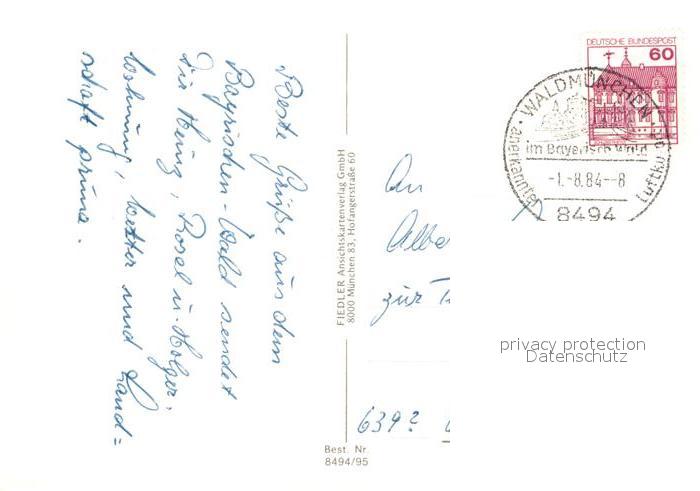 Beste Grüße aus dem
Bayrischen-Wald sendet
Die Heinz, Rosel u. Holger.
Wohnung, Wetter und Land=
schaft prima.
FIEDLER Ansichtskartenverlag GmbH
8000 München 83, Hofangerstraße 60
Best. Nr.
8494/95
DEUTSCHE BUNDESPOST
60
WALDMÜNCHEN
im Bayerisch. Wald
-1.-8.84--8
anerkannter
Luftkurort
8494
An
Albe
zur
639?
privacy protection
Datenschutz